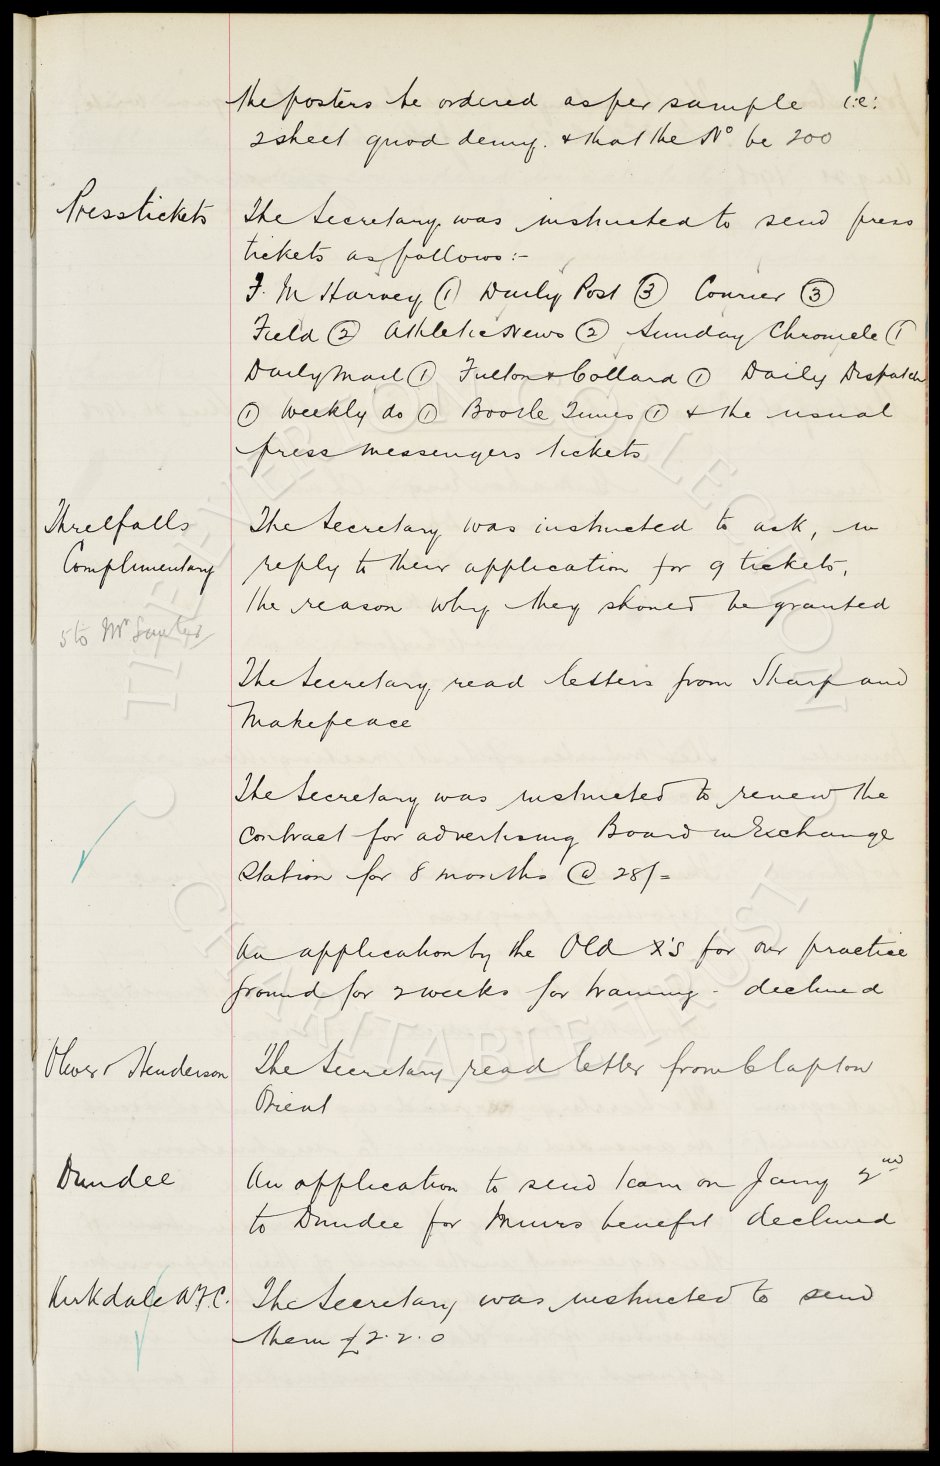 the posters be ordered as per sample i:e:
2 sheet quod demy. & that the No be 200
Press tickets
The Secretary was instructed to send press
tickets as follows:-
F. M Harvey (1) Daily Post (3) Courier (3)
Field (2) Athletic News (2) Sunday Chronicle (1
Daily Mail (1) Fulton & Collard (1) Daily Dispatch
(1) Weekly do (1) Bootle Times (1) & the usual
press messengers tickets
Threlfalls
Complimentary
5 to Mr
The Secretary was instructed to ask, in
reply to their application for 9 tickets,
the reason why they should be granted
The Secretary read letters from Sharp and
Makepeace
The Secretary was instructed to renew the
contract for advertising Board in Exchange
Station for 8 months @ 28/=
An application by the Old X's for our practice
ground for 2 weeks for training - declined
Oliver & Henderson
The Secretary read letter from Clapton
Orient
Dundee
An application to send team on Jany 2nd
to Dundee for Muirs benefit declined
Kirkdale A.F.C.
The Secretary was instructed to send
them £2.2.0
THE EVERTON COLLECTION
CHARITABLE TRUST